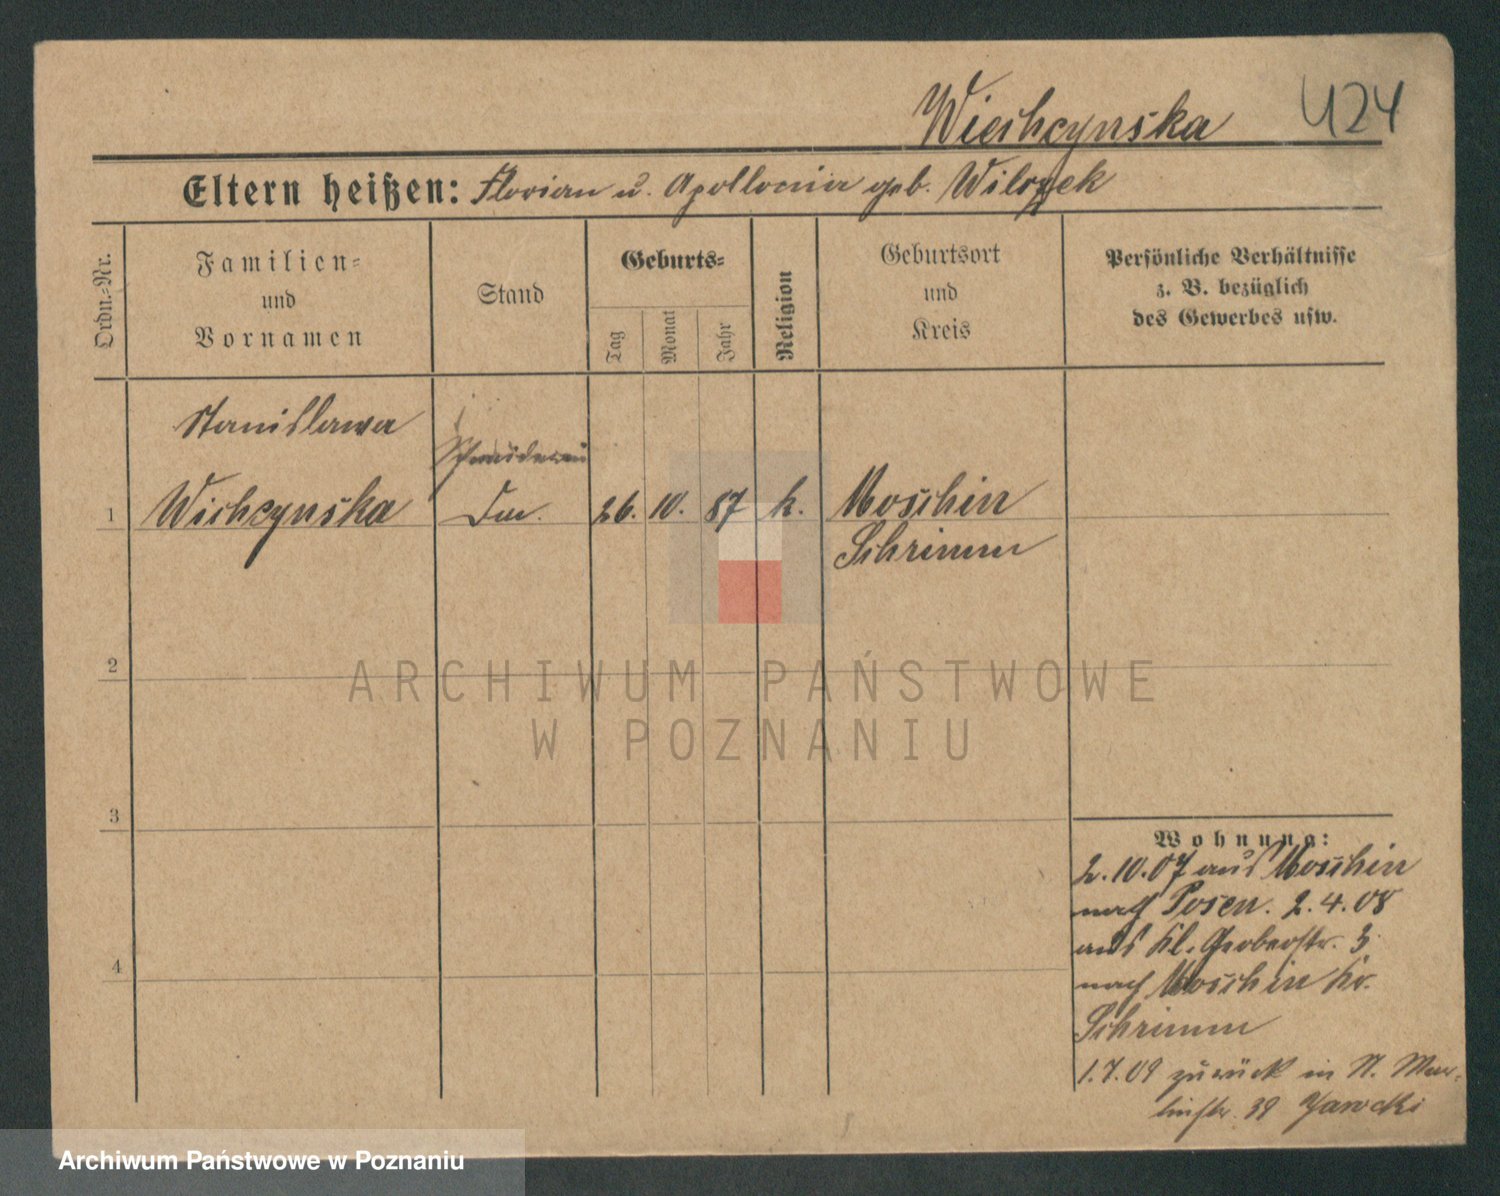 Wiechcynska 424
Eltern heißen: Florian u. Apollonia geb. Wilczek
Ordn.-Nr.
Familien-
und
Vornamen
Stand
Geburts-
Tag
Monat
Jahr
Religion
Geburtsort
und
Kreis
Persönliche Verhältnisse
z. B. bezüglich
des Gewerbes usw.
Stanislawa
Schneiderin
1 Wichcynska 26. 10. 87 k. Moschin
Schrimm
2
3
4
Wohnung:
2.10.07 aus Moschin
nach Posen. 2.4.08
aus Kl. Gerberstr. 3
nach Moschin Kr.
Schrimm
1.7.09 zurück in St. Mar-
tinstr. 39 Jarocki
ARCHIWUM PAŃSTWOWE
W POZNANIU
Archiwum Państwowe w Poznaniu